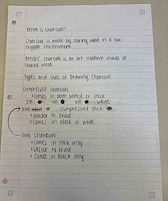 What is Charcoal?
Charcoal is made by cooking wood in a low
oxygen environment.
Artists' charcoal is an art medium made of
Types and Uses of Drawing Charcoal
Compressed Charcoal
• Comes in both pencil or stick
2B 4B 6B white
Compressed stick
• Harder to erase
• Comes in black or white
Vine Charcoal
• Comes in stick only
• Easier to erase
• Comes in black only